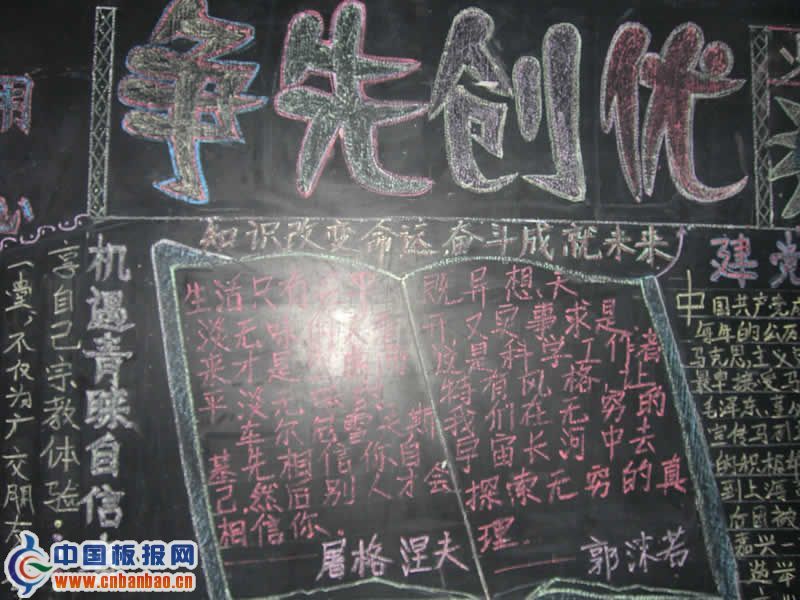 争先创优
知识改变命运 奋斗成就未来
机遇青睐自信
享自己宗教体验
一堂,不仅为广交朋友
生活只有在平
淡无味的人看
来才是
平淡无
车尔尼雪夫斯
基
先相信你自
己,然后别人才会
相信你.
屠格涅夫
既异想天
开又实事求是
这是科学工作者
特有的风格
我们在无穷的
宇宙长河中去
探索无穷的真
理.
郭沫若
建党
中国共产党成
每年的公历
马克思主义
最早接受马
毛泽东、董
宣传马列
的积极
到上海
嘉兴
中国板报网
www.cnbanbao.cn